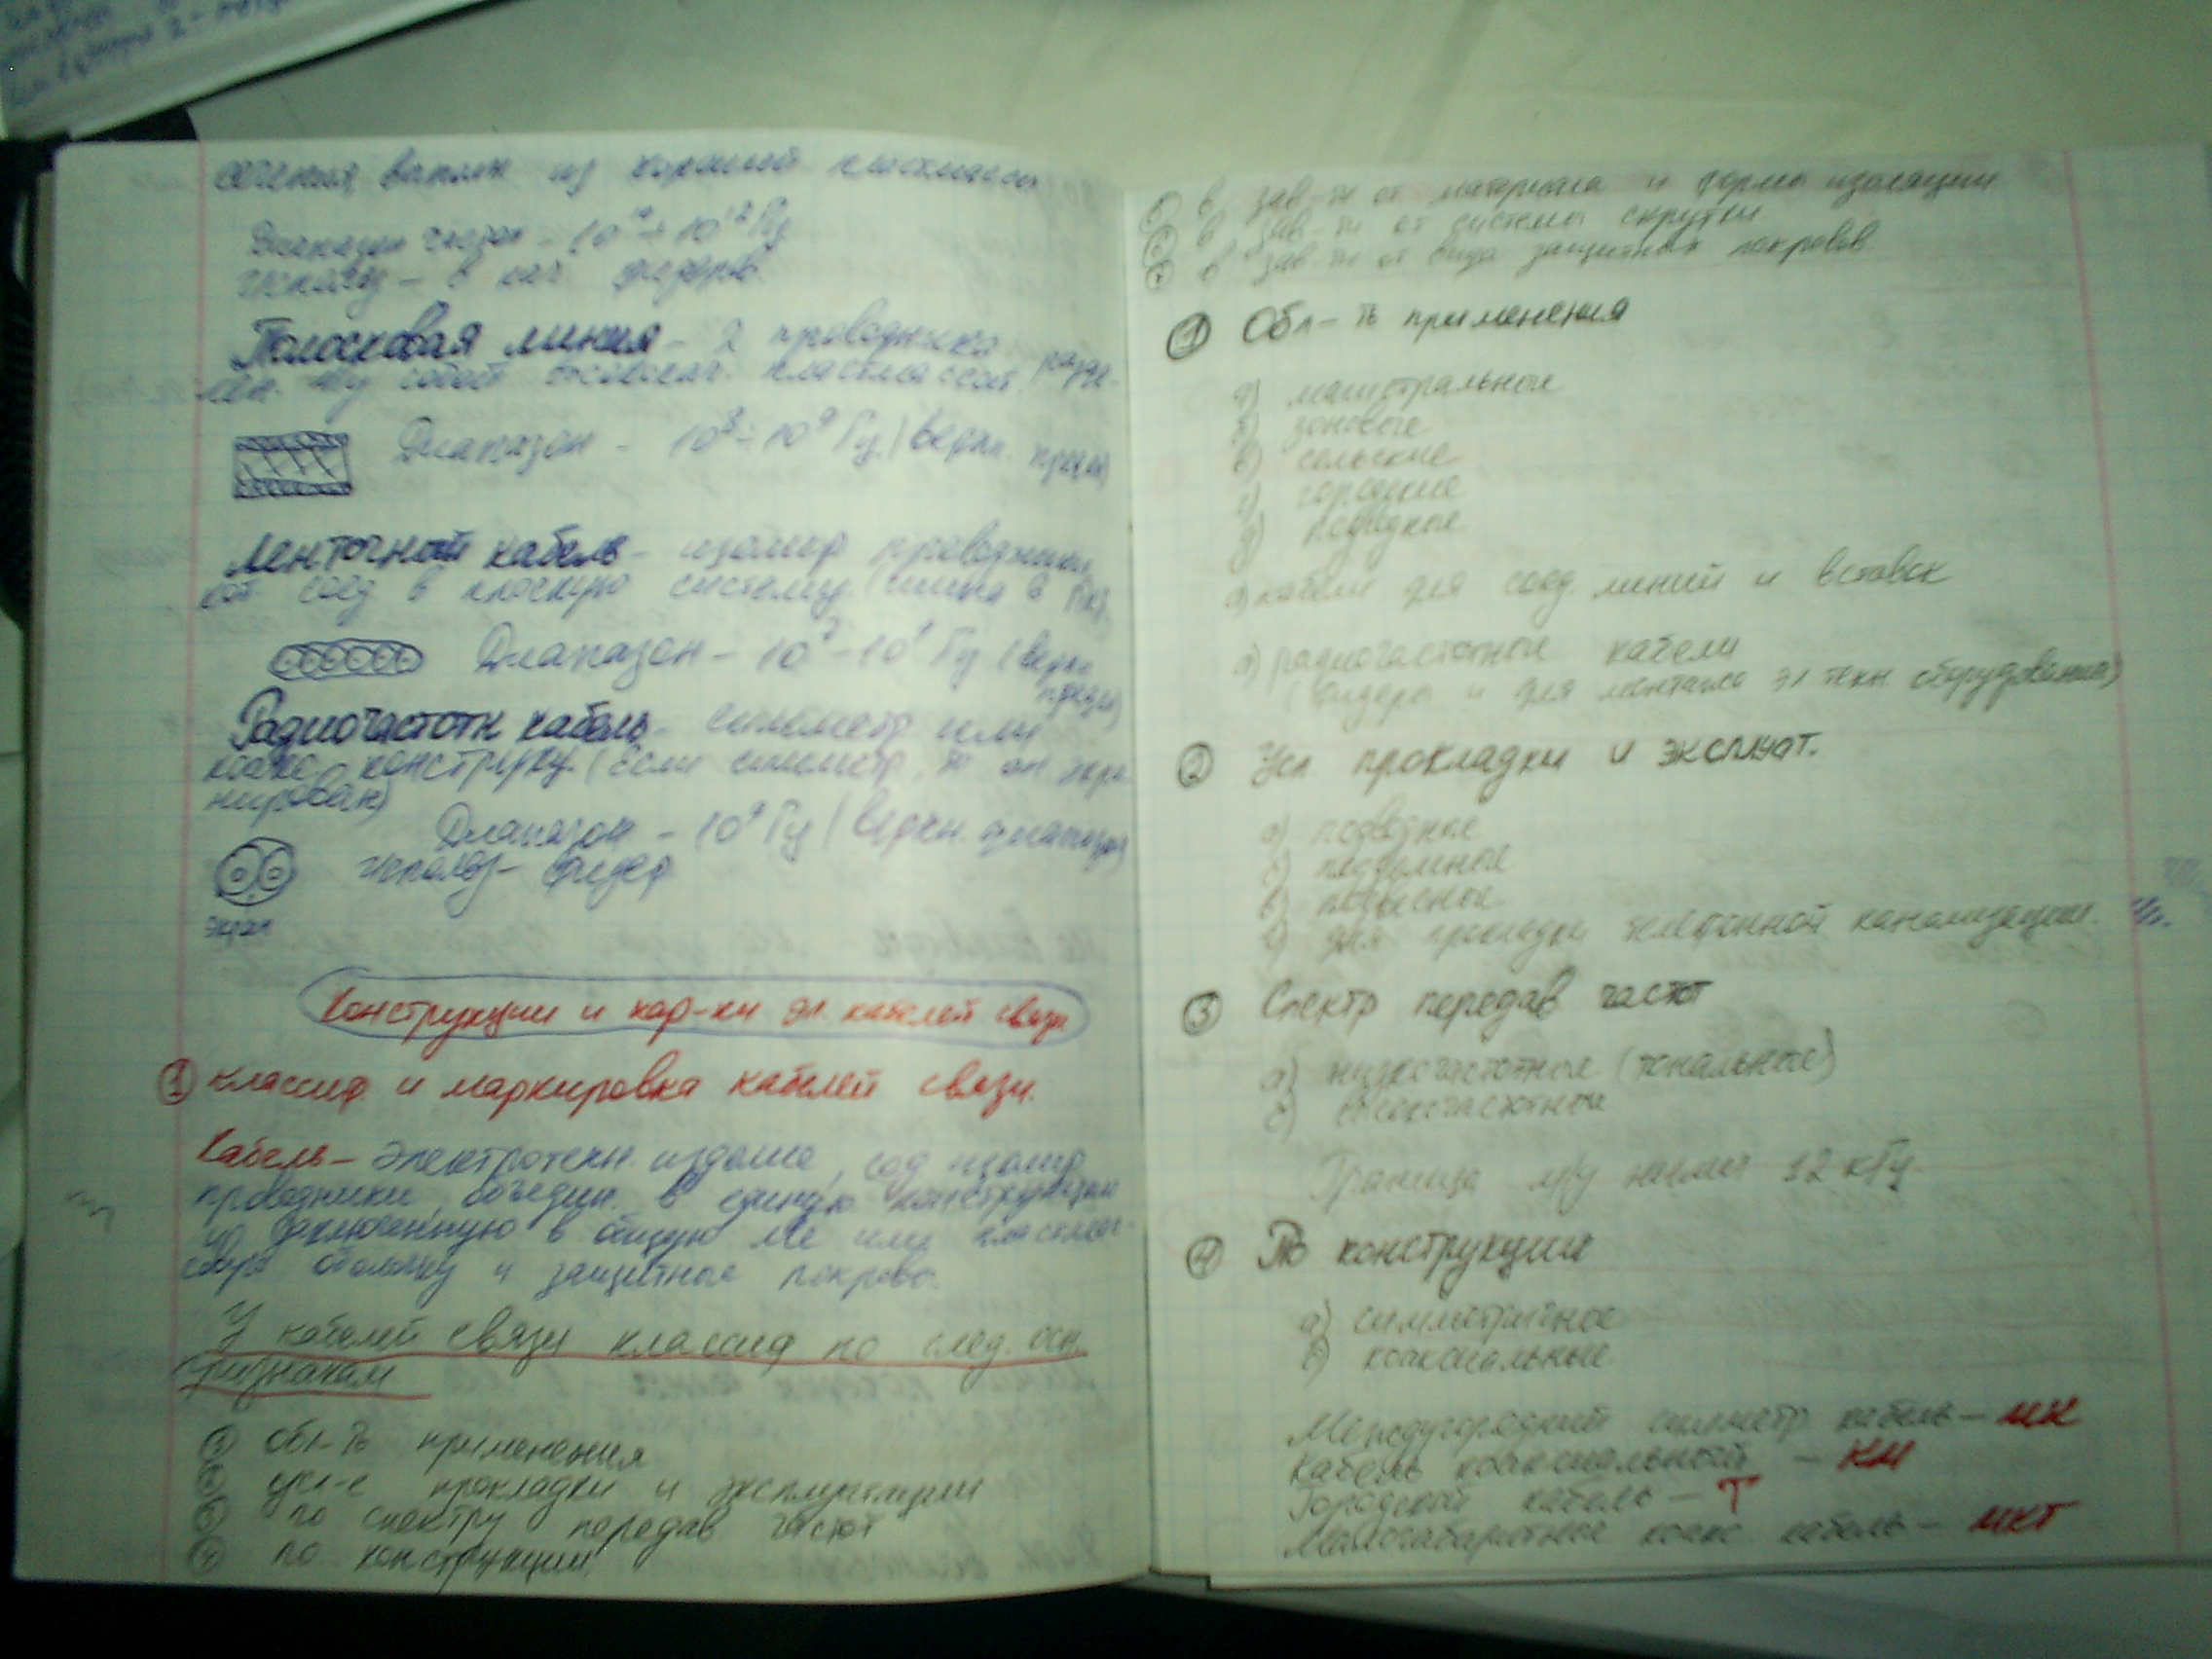 сечения, выполн из хорошей пластмассы
Диапазон частот – 10¹⁰ ÷ 10¹² Гц
Использ – в кач. фидеров.
Полосковая линия – 2 проводника, разде-
лен. м/у собой высококач. пластмассой.
Диапазон – 10⁸ ÷ 10⁹ Гц. (верхн. предел)
Ленточный кабель – изолир проводники,
кот соед в плоскую систему (шина в ПК).
Диапазон – 10 – 10 Гц (верхн
предел)
Радиочастотн кабель – симметр или
коакс конструкц. (если симметр, то он экра-
нирован)
Диапазон – 10⁹ Гц (верхн. диапазон)
Использ – фидер
экран
Конструкции и хар-ки эл. кабелей связи
① классиф. и маркировка кабелей связи.
Кабель – электротехн. изделие, сод изолир
проводники, объедин. в единую конструкцию
и заключенную в общую Ме или пластмас-
совую оболочку и защитные покровы.
У кабелей связи классиф по след. осн.
признакам
① обл-ть применения
② усл-е прокладки и эксплуатации
③ по спектру передав. частот
④ по конструкции
⑤ в зав-ти от материала и формы изоляции
⑥ в зав-ти от системы скрутки
⑦ в зав-ти от вида защитных покровов.
① Обл-ть применения
а) магистральные
б) зоновые
в) сельские
г) городские
д) подводные
кабели для соед. линий и вставок
радиочастотные кабели
(фидеры и для монтажа эл техн оборудования)
② Усл. прокладки и эксплуат.
а) подводные
б) подземные
в) подвесные
г) для прокладки телефонной канализации.
③ Спектр передав частот
а) низкочастотные (тональные)
б) высокочастотные
Граница м/у ними 12 кГц.
④ По конструкции
а) симметричные
б) коаксиальные
Междугородний симметр. кабель – МК
Кабель коаксиальный – КМ
Городской кабель – Т
Малогабаритное коакс кабель – МКТ